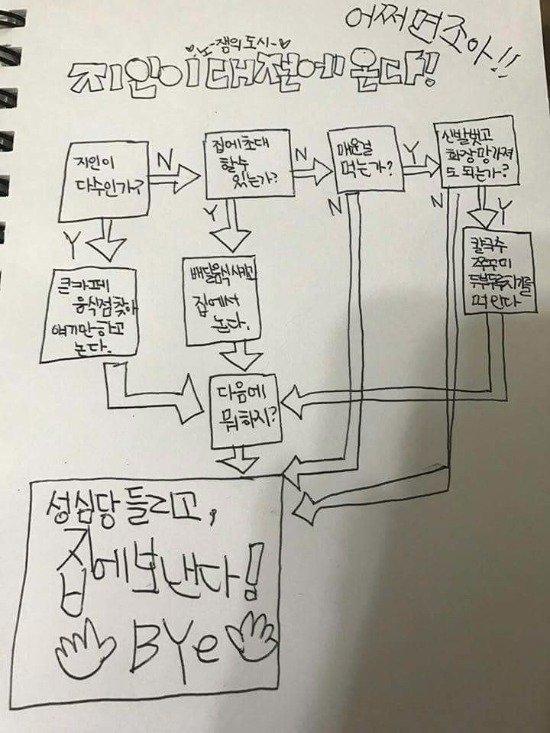 어쩌면조아!!
노-잼의 도시-
지인이 대전에 온다!
지인이
다수인가?
N
집에초대
할수
있는가?
N
매운걸
먹는가?
Y
신발벗고
화장망가져
도 되는가?
Y
Y
N
N
Y
큰카페
음식점찾아
얘기만하고
논다.
배달음식시키고
집에서
논다.
칼국수
쭈꾸미
두부두루치기를
먹인다
다음에
뭐하지?
성심당들리고,
집에보낸다!
BYe